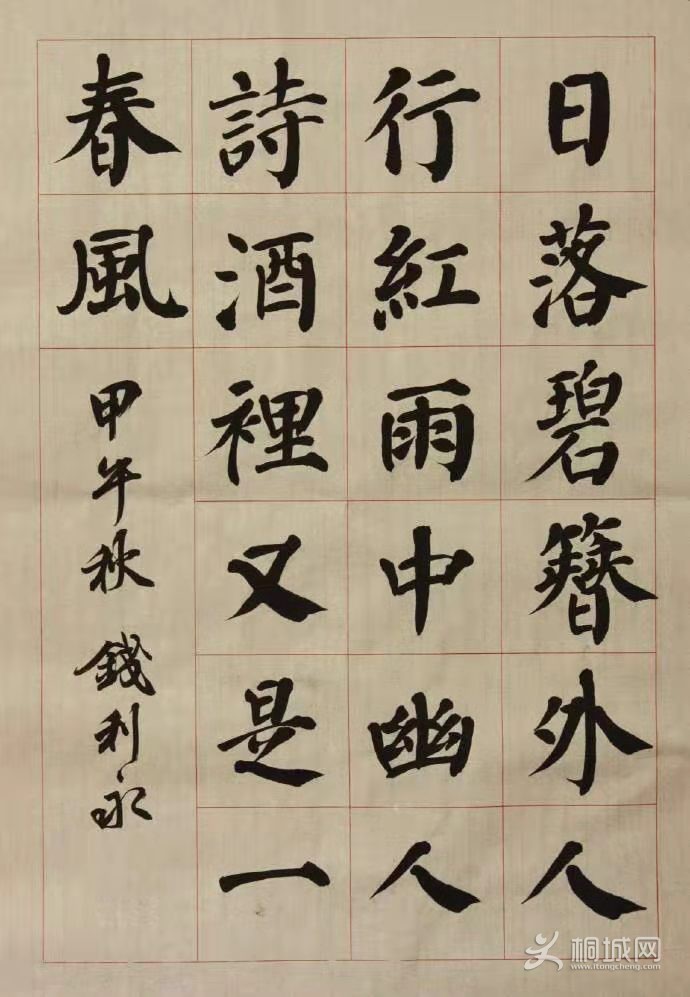 日落碧簪外人
行紅雨中幽人
詩酒裡又是一
春風
甲午秋 錢利永
桐城网
www.itongcheng.com